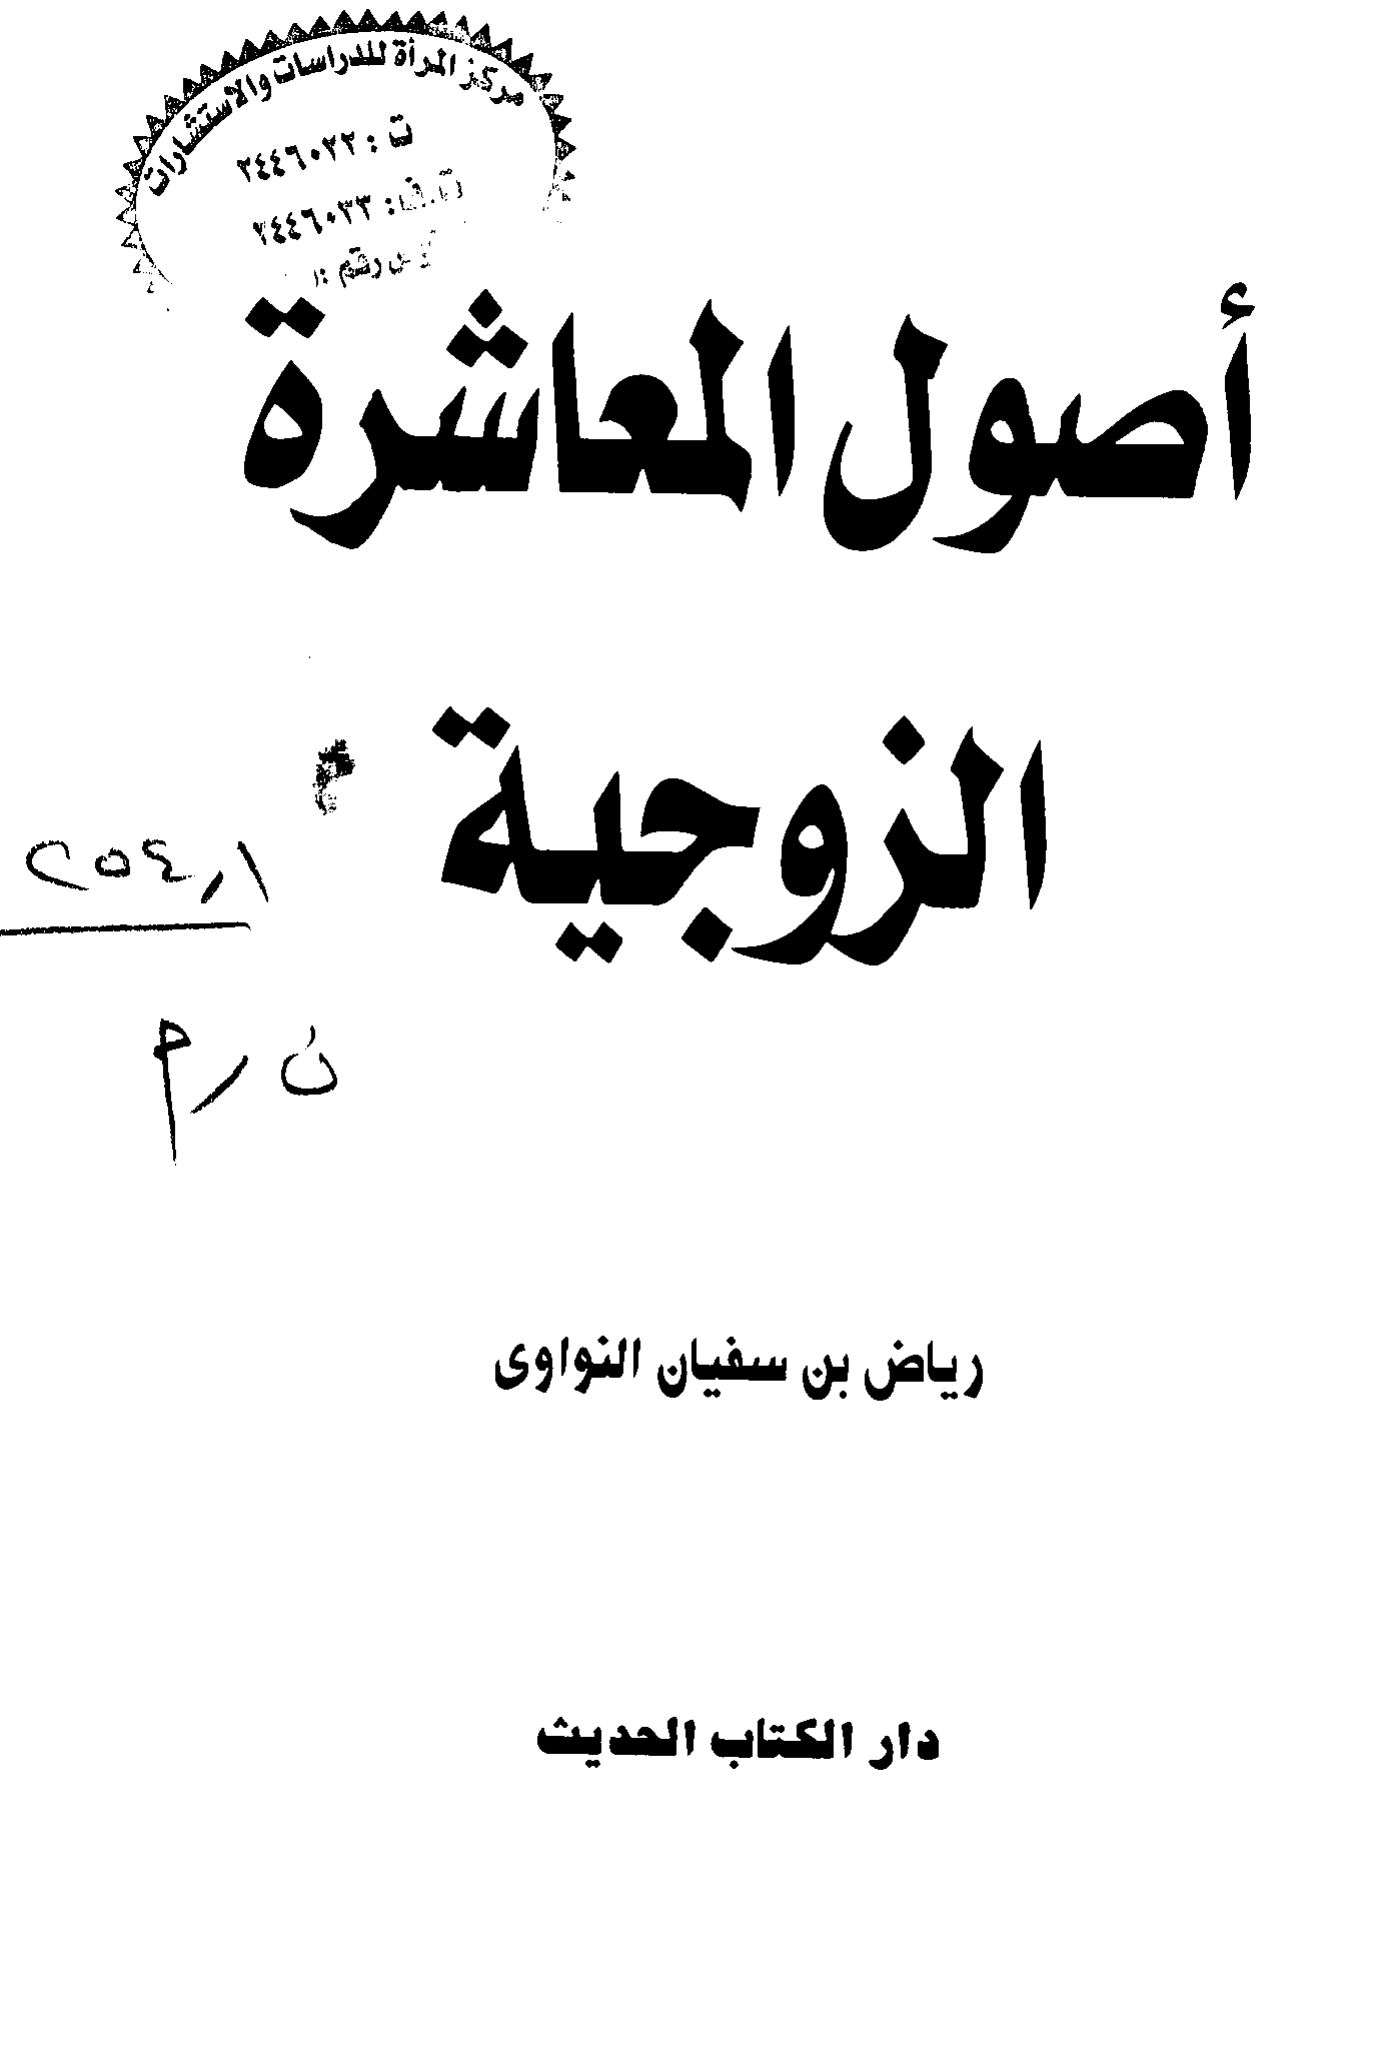 مركز المرأة للدراسات والاستشارات
ت : ٢٤٤٦٠٢٢
ت.ف: ٢٤٤٦٠٣٣
رقم :
أصول المعاشرة
الزوجية
٢٥٤,١
ن ر م
رياض بن سفيان النواوى
دار الكتاب الحديث